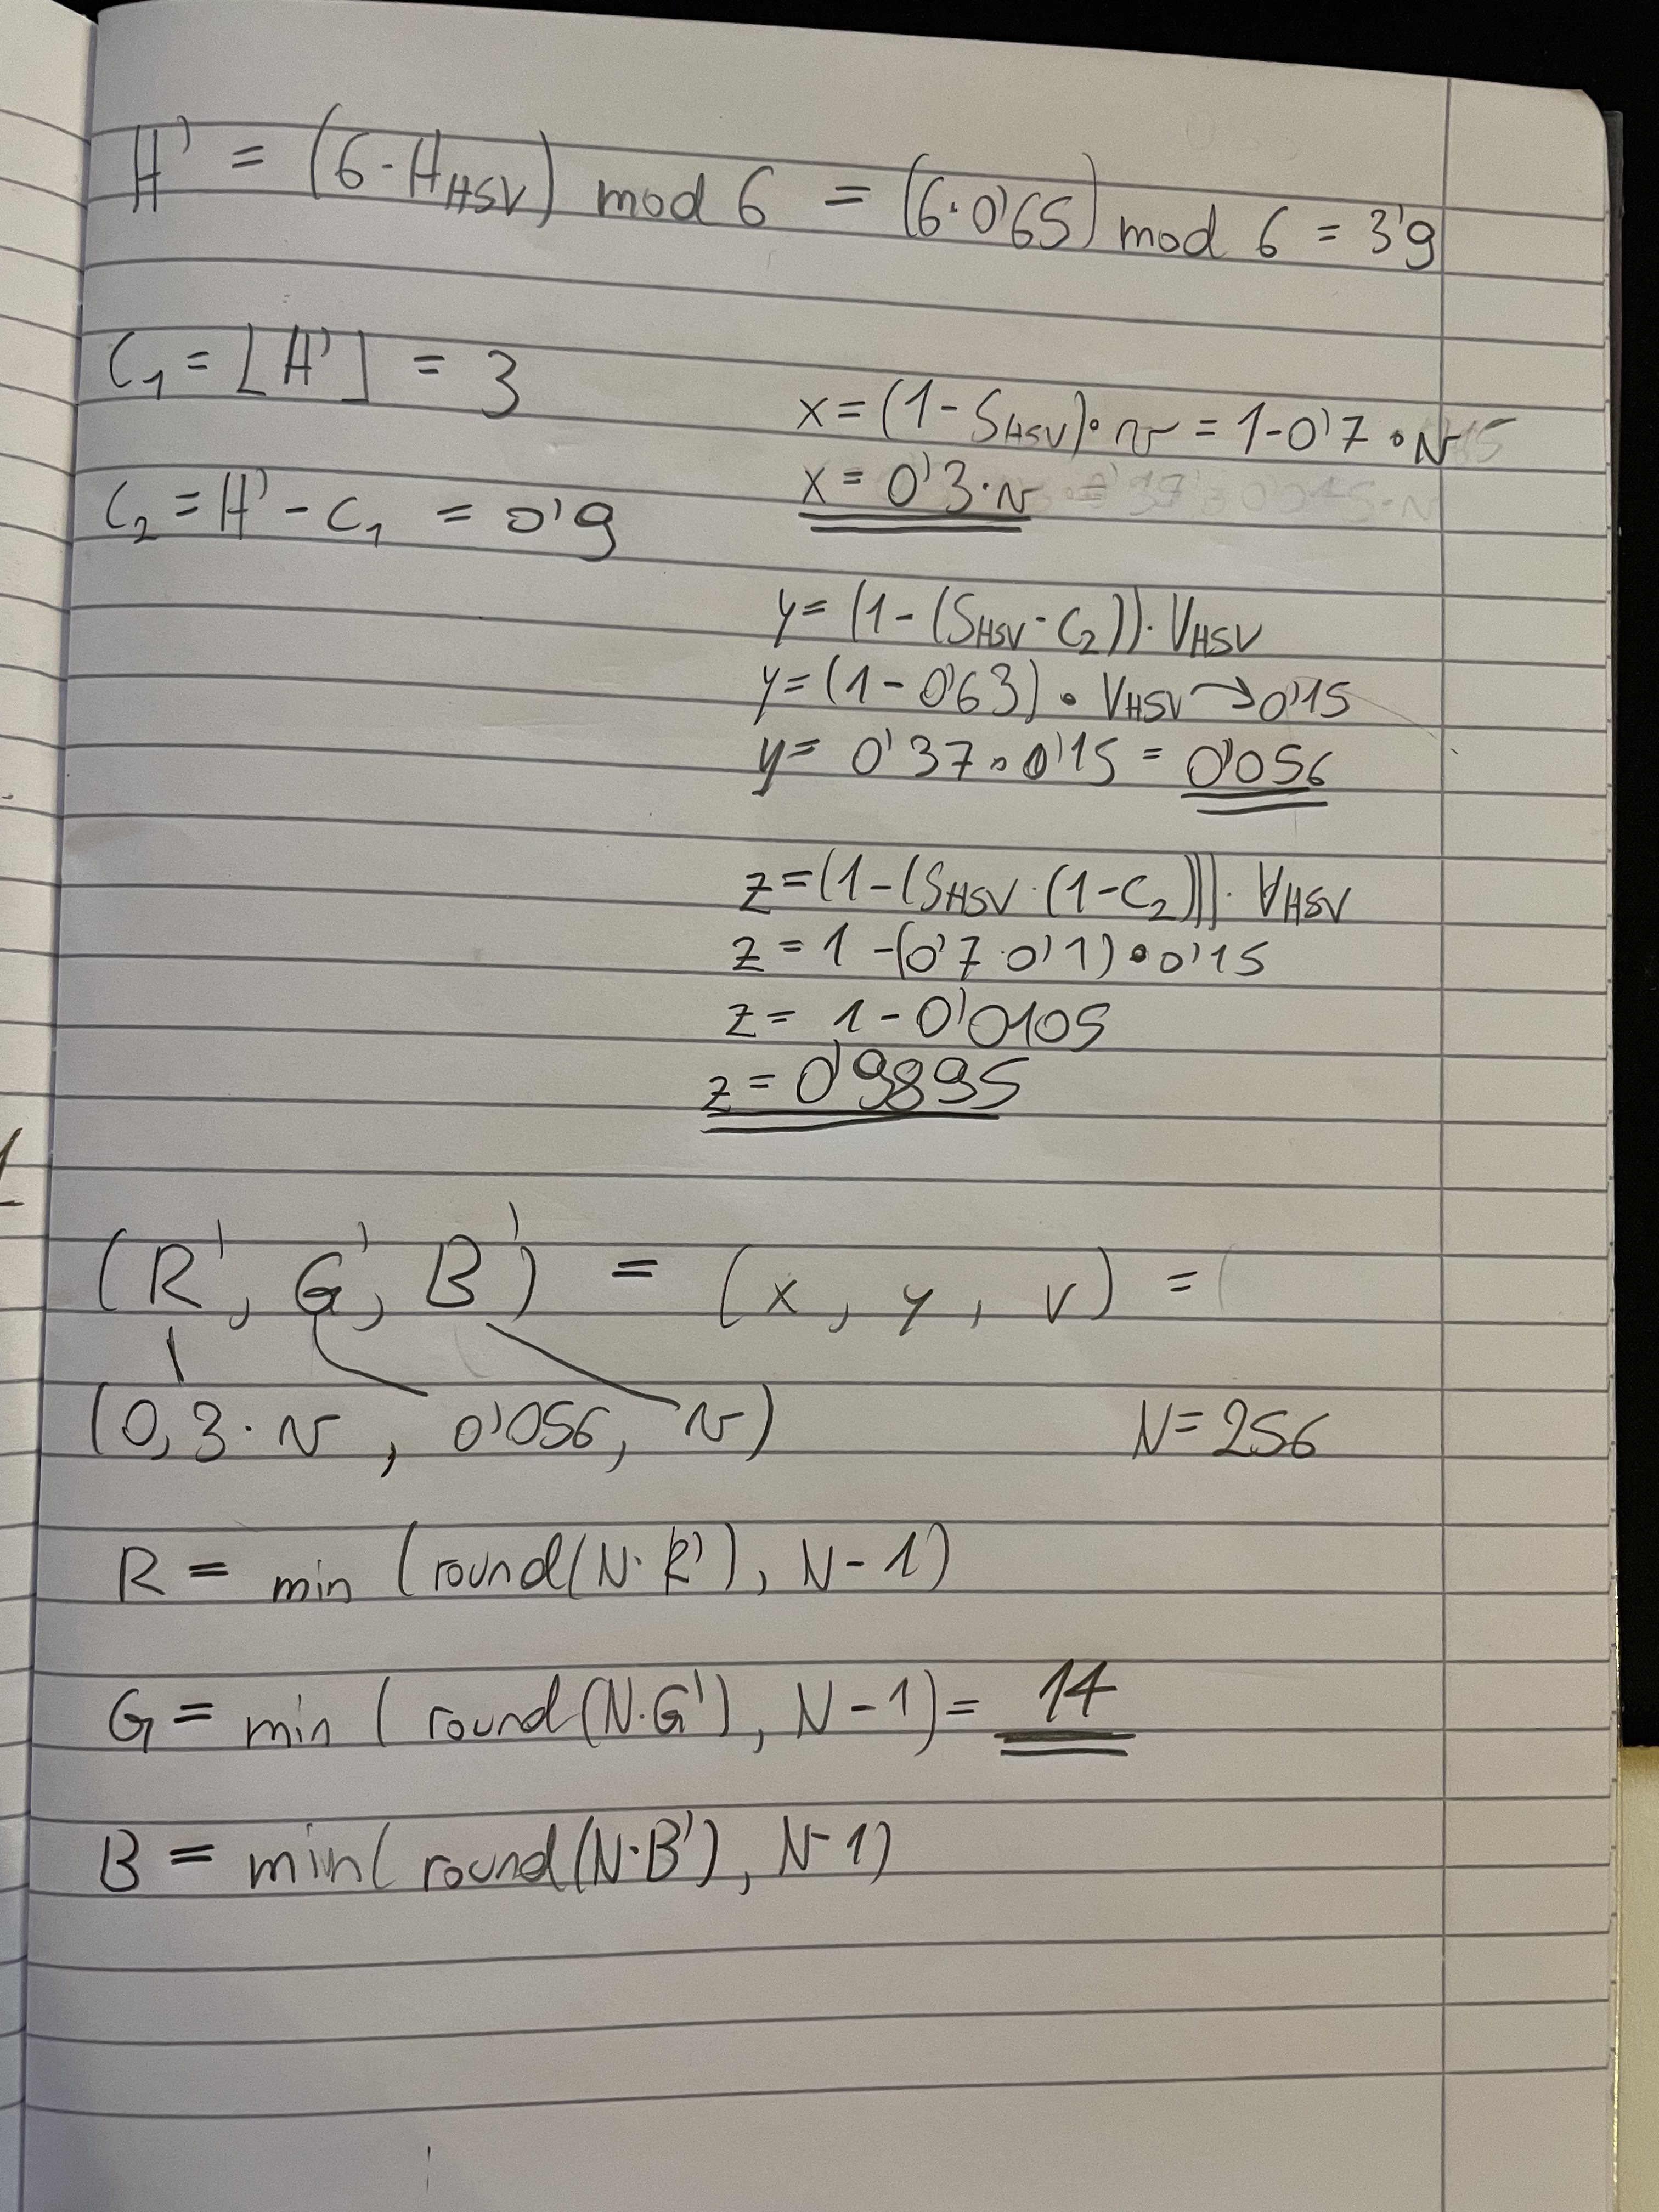 H' = (6·H_HSV) mod 6 = (6·0'65) mod 6 = 3'9
C₁ = ⌊H'⌋ = 3
x = (1 - S_HSV)·v = 1-0'7·v
C₂ = H' - C₁ = 0'9
x = 0'3·v
y = (1 - (S_HSV·C₂))·V_HSV
y = (1 - 0'63)·V_HSV → 0'15
y = 0'37·0'15 = 0'056
z = (1 - (S_HSV·(1-C₂)))·V_HSV
z = 1 - (0'7·0'1)·0'15
z = 1 - 0'0105
z = 0'9895
(R', G', B') = (x, y, v) =
(0,3·v, 0'056, v) N=256
R = min (round(N·R'), N-1)
G = min (round(N·G'), N-1) = 14
B = min(round(N·B'), N-1)